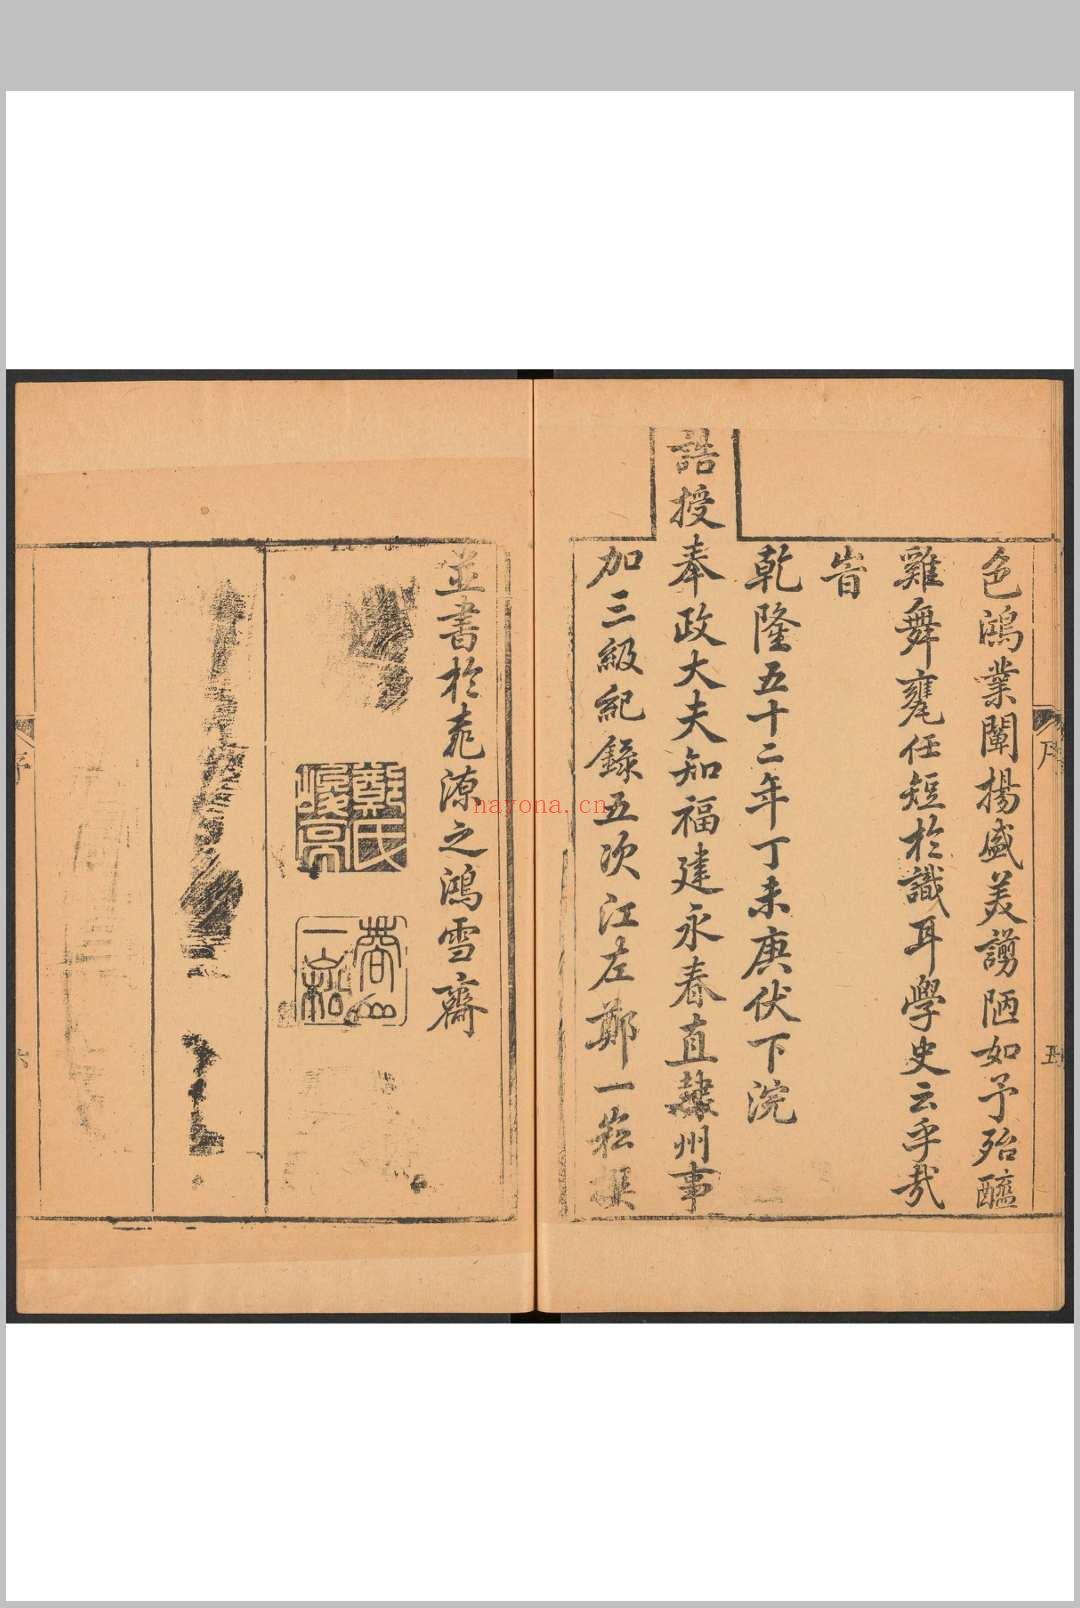 色鴻業闡揚盛美謭陋如予殆醯
雞舞甕任短於識耳學史云乎哉
旹
乾隆五十二年丁未庚伏下浣
誥授奉政大夫知福建永春直隸州事
加三級紀錄五次江左鄭一崧撰
並書於桃源之鴻雪齋
鄭氏
一崧
序
五
序
六
nayona.cn